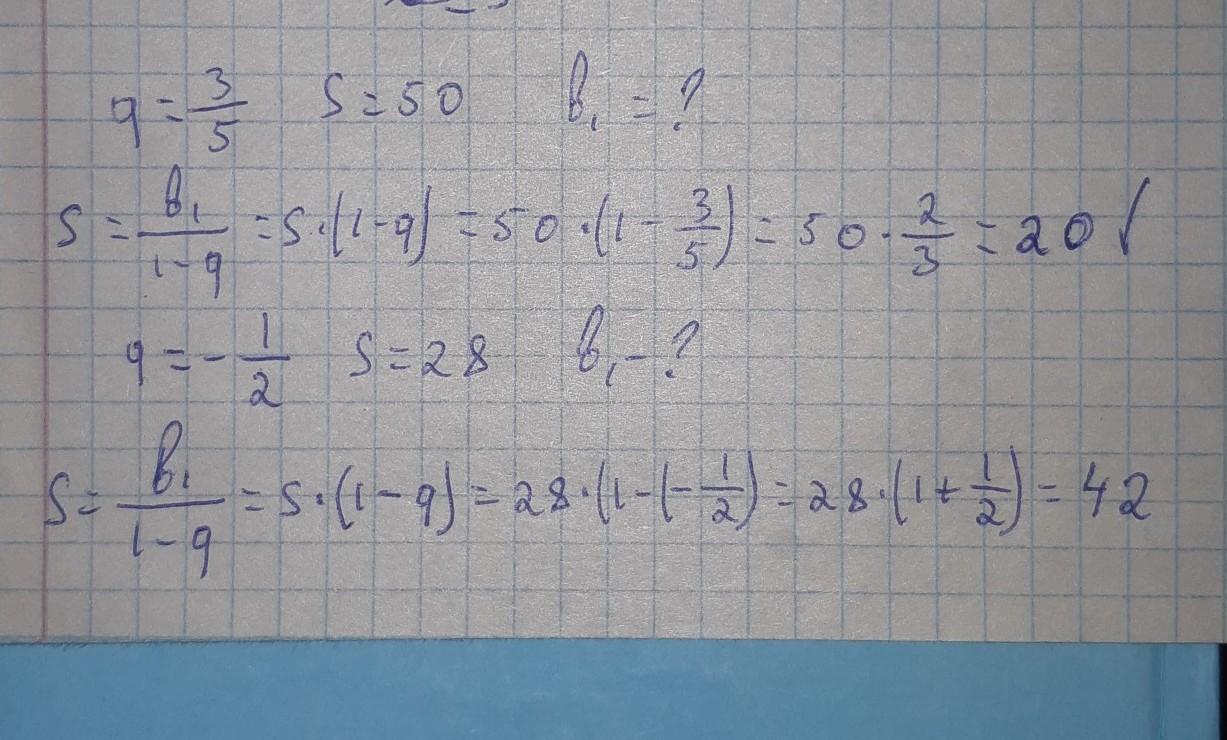 q = 3/5 S = 50 b₁ = ?
S = b₁/(1-q) = S·(1-q) = 50·(1 - 3/5) = 50·2/3 = 20 ✓
q = -1/2 S = 28 b₁ - ?
S = b₁/(1-q) = S·(1-q) = 28·(1-(-1/2) = 28·(1+1/2) = 42